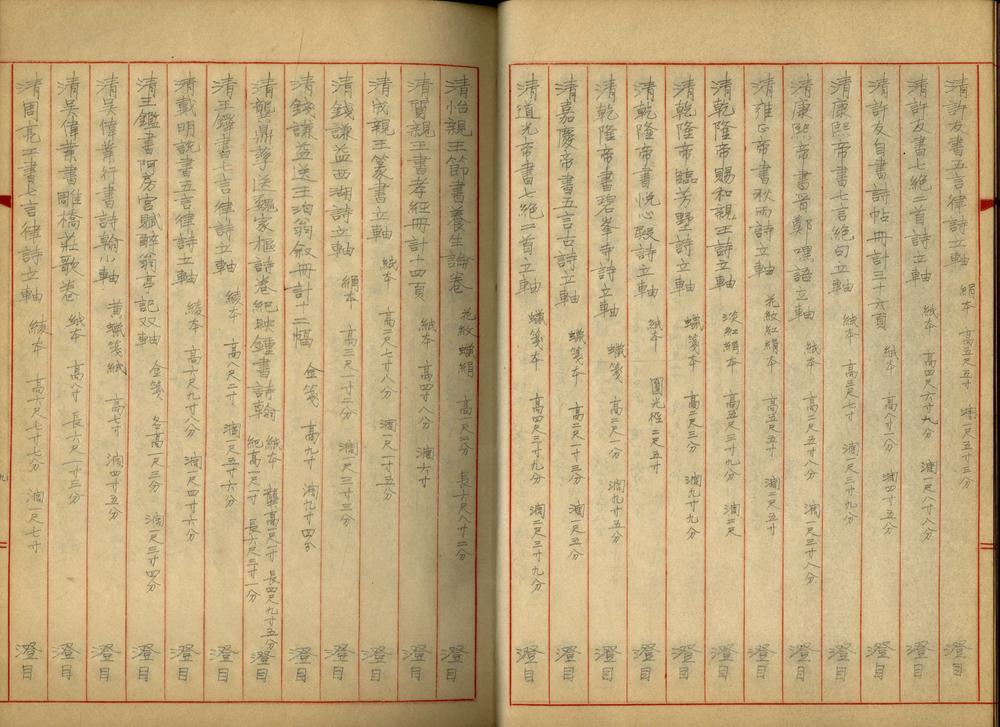 清許友書五言律詩立軸 絹本 高五尺五寸 濶一尺五寸三分 澄目
清許友書七絕二首詩立軸 紙本 高四尺六寸九分 濶一尺八寸八分 澄目
清許友自書詩帖冊計三十六頁 紙本 高八寸一分 濶四寸五分 澄目
清康熙帝書七言絕句立軸 紙本 高三尺七寸 濶一尺三寸九分 澄目
清康熙帝書晋鄭嘿語立軸 紙本 高二尺五寸八分 濶一尺三寸八分 澄目
清雍正帝書秋雨詩立軸 花紋紅絹本 高五尺五寸 濶二尺五寸 澄目
清乾隆帝賜和親王詩立軸 淡紅絹本 高五尺三寸九分 濶二尺 澄目
清乾隆帝臨芳墅詩立軸 蠟箋本 高二尺三分 濶九寸九分 澄目
清乾隆帝書悅心殿詩立軸 紙本 圓光徑二尺五寸 澄目
清乾隆帝書碧峯寺詩立軸 蠟箋 高二尺一分 濶九寸五分 澄目
清嘉慶帝書五言古詩立軸 蠟箋本 高二尺一寸三分 濶一尺五分 澄目
清道光帝書七絕二首立軸 蠟箋本 高四尺三寸九分 濶二尺三寸九分 澄目
清怡親王節書養生論卷 花紋蠟絹 高一尺二分 長六尺八寸二分 澄目
清質親王書孝經冊計十四頁 紙本 高四寸八分 濶六寸 澄目
清成親王篆書立軸 紙本 高二尺七寸八分 濶一尺一寸五分 澄目
清錢謙益西湖詩立軸 絹本 高三尺一寸二分 濶一尺三寸三分 澄目
清錢謙益送王泊翁敘冊計十二幅 金箋 高九寸 濶九寸四分 澄目
清龔鼎孳送魏家樞詩卷紀映鍾書詩翰 紙本 龔高一尺一寸 長四尺九寸五分 紀高一尺一寸 長六尺三寸一分 澄目
清王鐸書七言律詩立軸 綾本 高八尺二寸 濶一尺五寸六分 澄目
清戴明說書五言律詩立軸 綾本 高六尺九寸八分 濶一尺四寸六分 澄目
清王鑑書阿房宮賦醉翁亭記双軸 金箋 各高一尺三分 濶一尺三寸四分 澄目
清吳偉業行書詩翰小軸 黃蠟箋紙 高七寸 濶四寸五分 澄目
清吳偉業書雕橋莊歌卷 紙本 高八寸 長六尺一寸三分 澄目
清周亮工書七言律詩立軸 綾本 高六尺七寸七分 濶一尺七寸 澄目
九